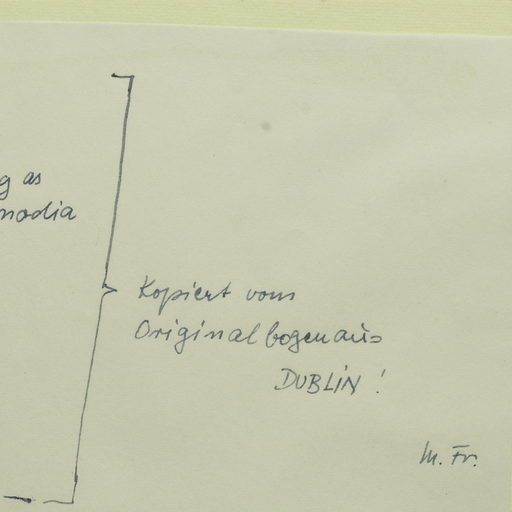 g as
nodia
Kopiert vom
Originalbogen aus
DUBLIN !
M. Fr.